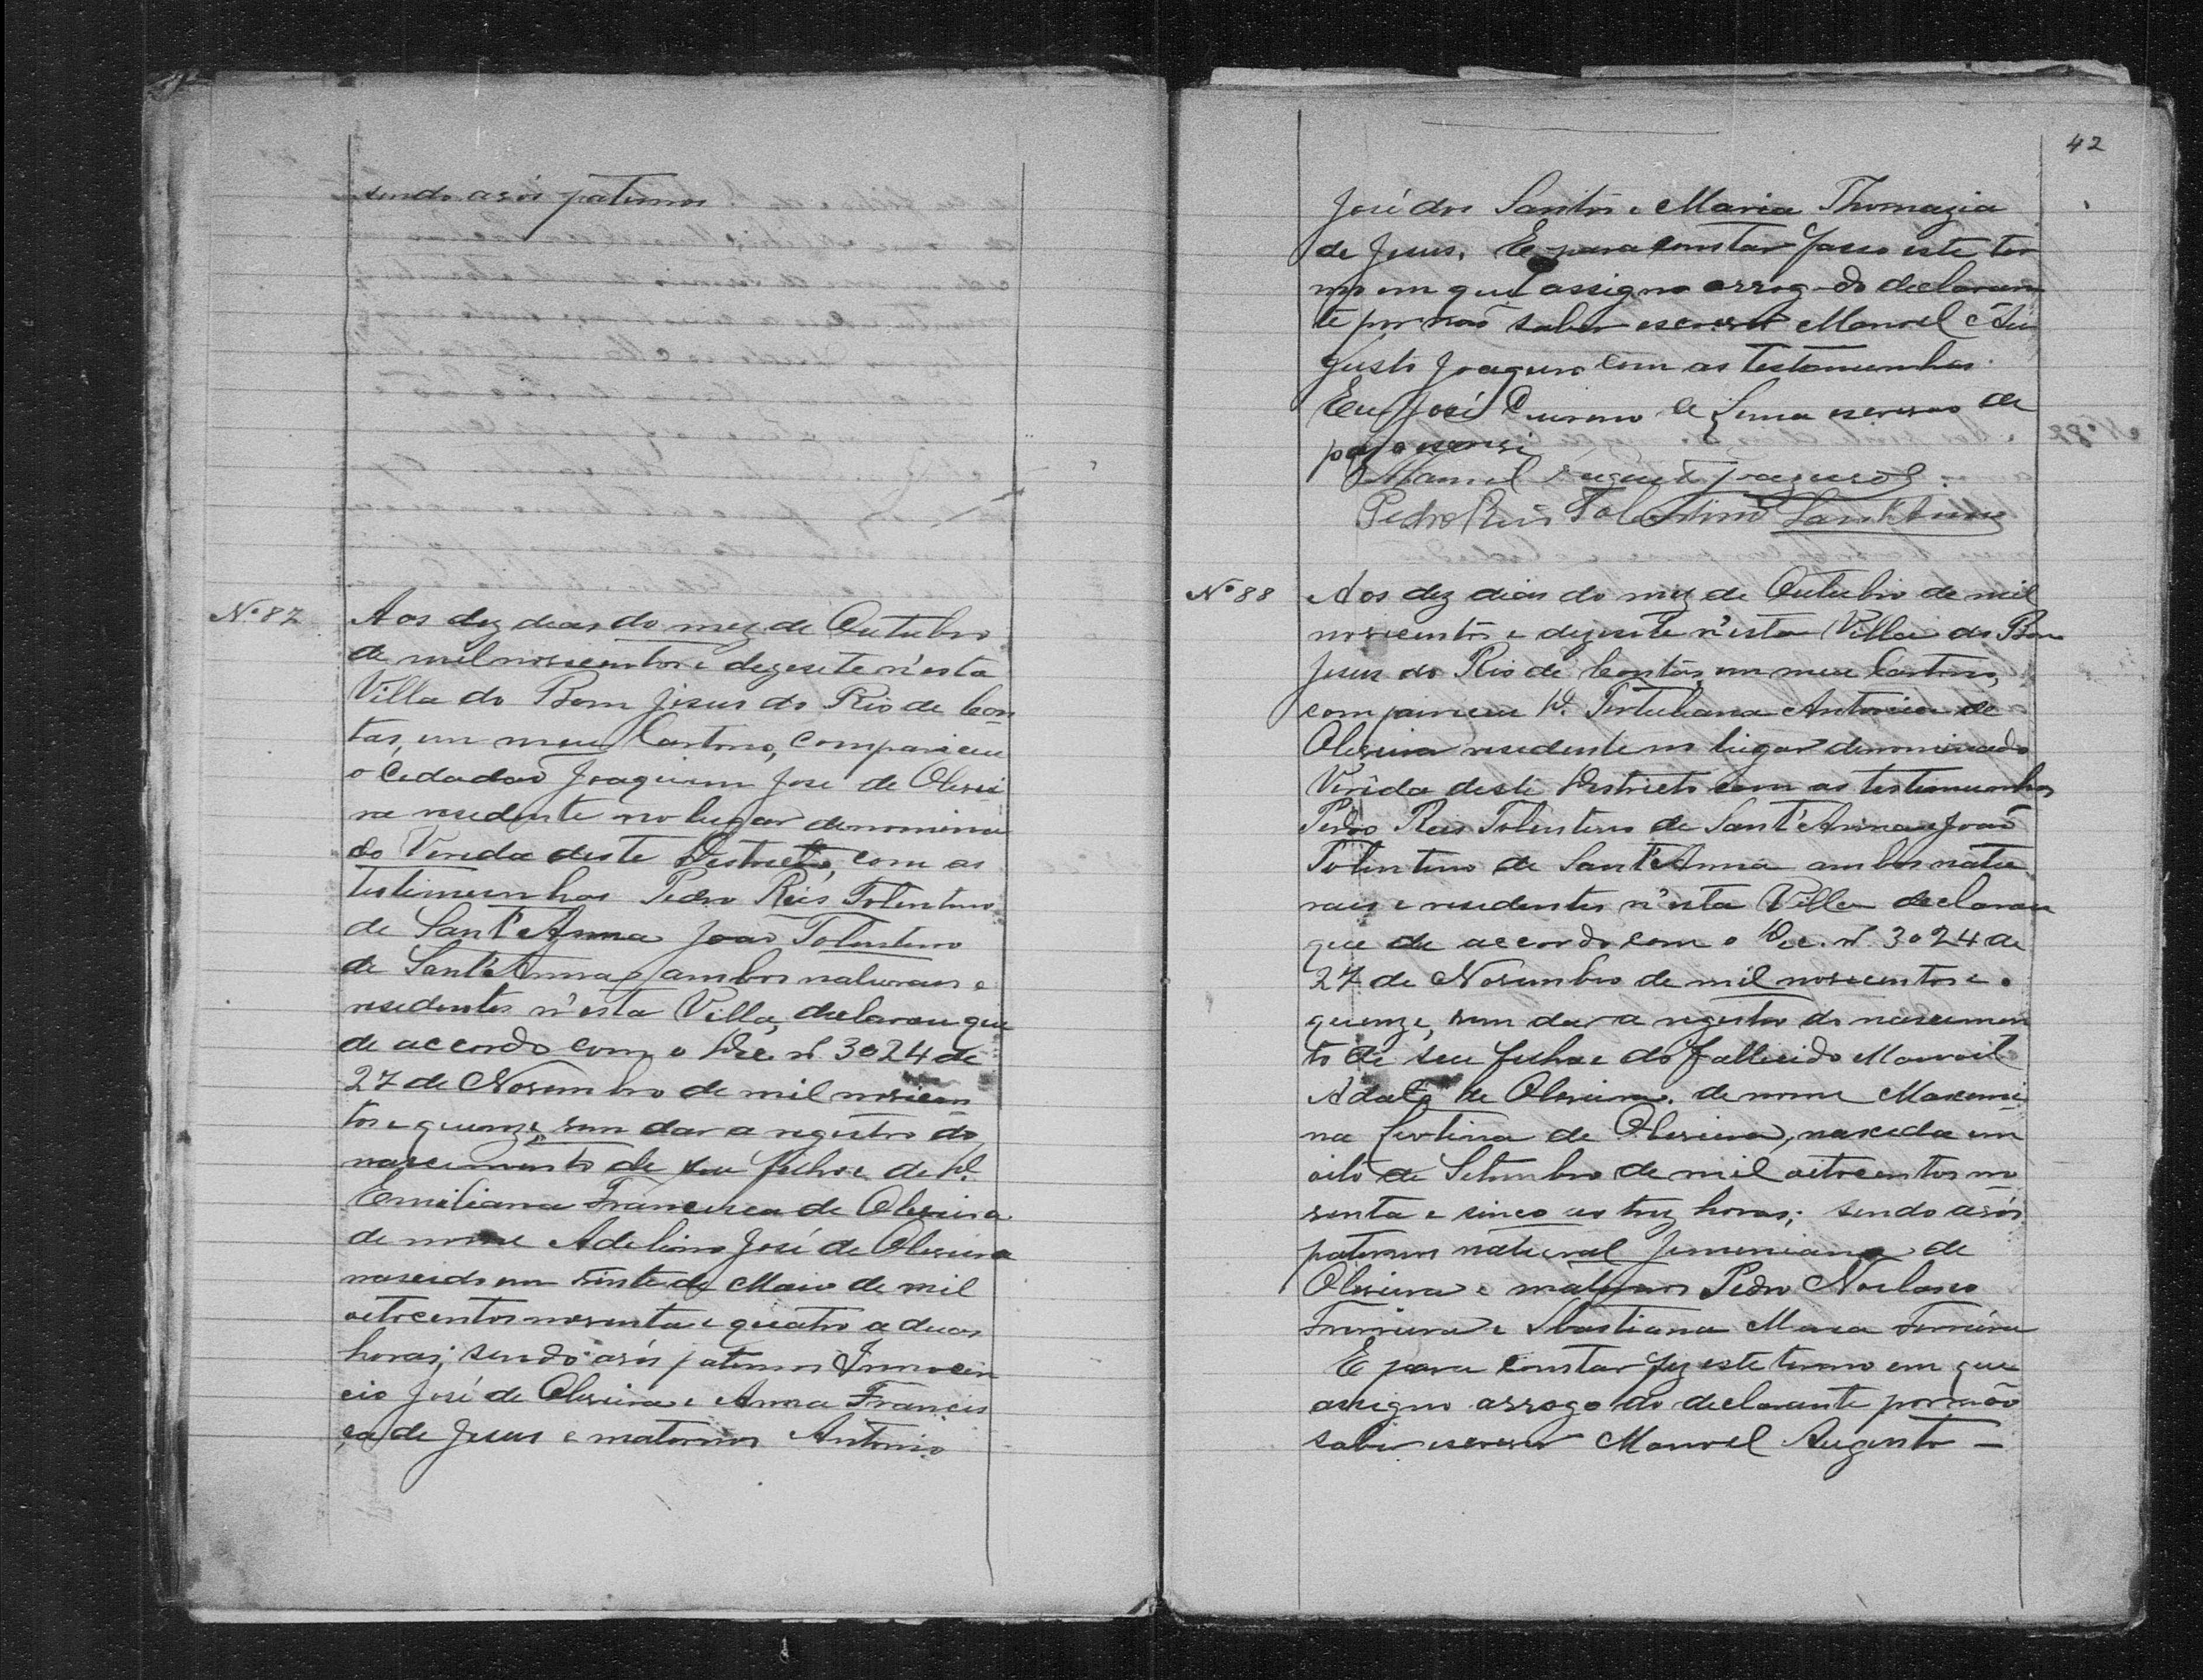 sendo avós paternos
Nº 87
Aos dez dias do mez de Outubro
de mil novecentos e dezesete n'esta
Villa do Bom Jesus do Rio de Con
tas, em meu Cartorio, compareceu
o Cidadão Joaquim José de Olivei
ra residente no lugar denomina
do Vereda deste Destricto, com as
testimunhas Pedro Reis Tolentino
de Sant'Anna João Tolentino
de Sant'Anna, ambos naturaes e
residentes n'esta Villa, declarou que
de accordo com o Dec. nº 3024 de
27 de Novembro de mil novecen
tos e quenze, vem dar a registro do
nascimento de seu filho e de D.
Emiliana Francisca de Oliveira
de nome Adelino José de Oliveira
nascido em vinte de Maio de mil
oitocentos noventa e quatro a duas
horas; sendo avós paternos Innocen
cio José de Oliveira e Anna Francis
ca de Jesus e maternos Antonio
42
José dos Santos e Maria Thomazia
de Jesus. E para constar faço este ter
mo em que assigna arrogo do declaran
te por não saber escrever Manoel Au
gusto Joaquim com as testemunhas.
Eu José de Lima escrivão de
paz o escrevi
Manoel Augusto
Pedro Reis Tolentino Sant'Anna
Nº 88
Aos dez dias do mez de Outubro de mil
novecentos e dezesete n'esta Villa do Bom
Jesus do Rio de Contas, em meu Cartorio,
compareceu D. Tertuliana Antonia de
Oliveira residente no lugar denominado
Verêda deste Destricto com as testemunhas
Pedro Reis Tolentino de Sant'Anna e João
Tolentino de Sant'Anna ambos natu
raes e residentes n'esta Villa declarou
que de accordo com o Dec. nº 3024 de
27 de Novembro de mil novecentos e
quenze, vem dar a registro do nascimen
to de seu filha e do fallecido Manoel
de Oliveira. de nome Maxemi
na de Oliveira, nascida em
oito de Setembro de mil oitocentos no
venta e cinco as trez horas; sendo avós
paternos natural de
Oliveira e maternos Pedro Nolasco
Ferreira e Sbastiana Maria Ferreira
E para constar fiz este termo em que
assigno arrogo do declarante por não
saber escrever Manoel Augusto –